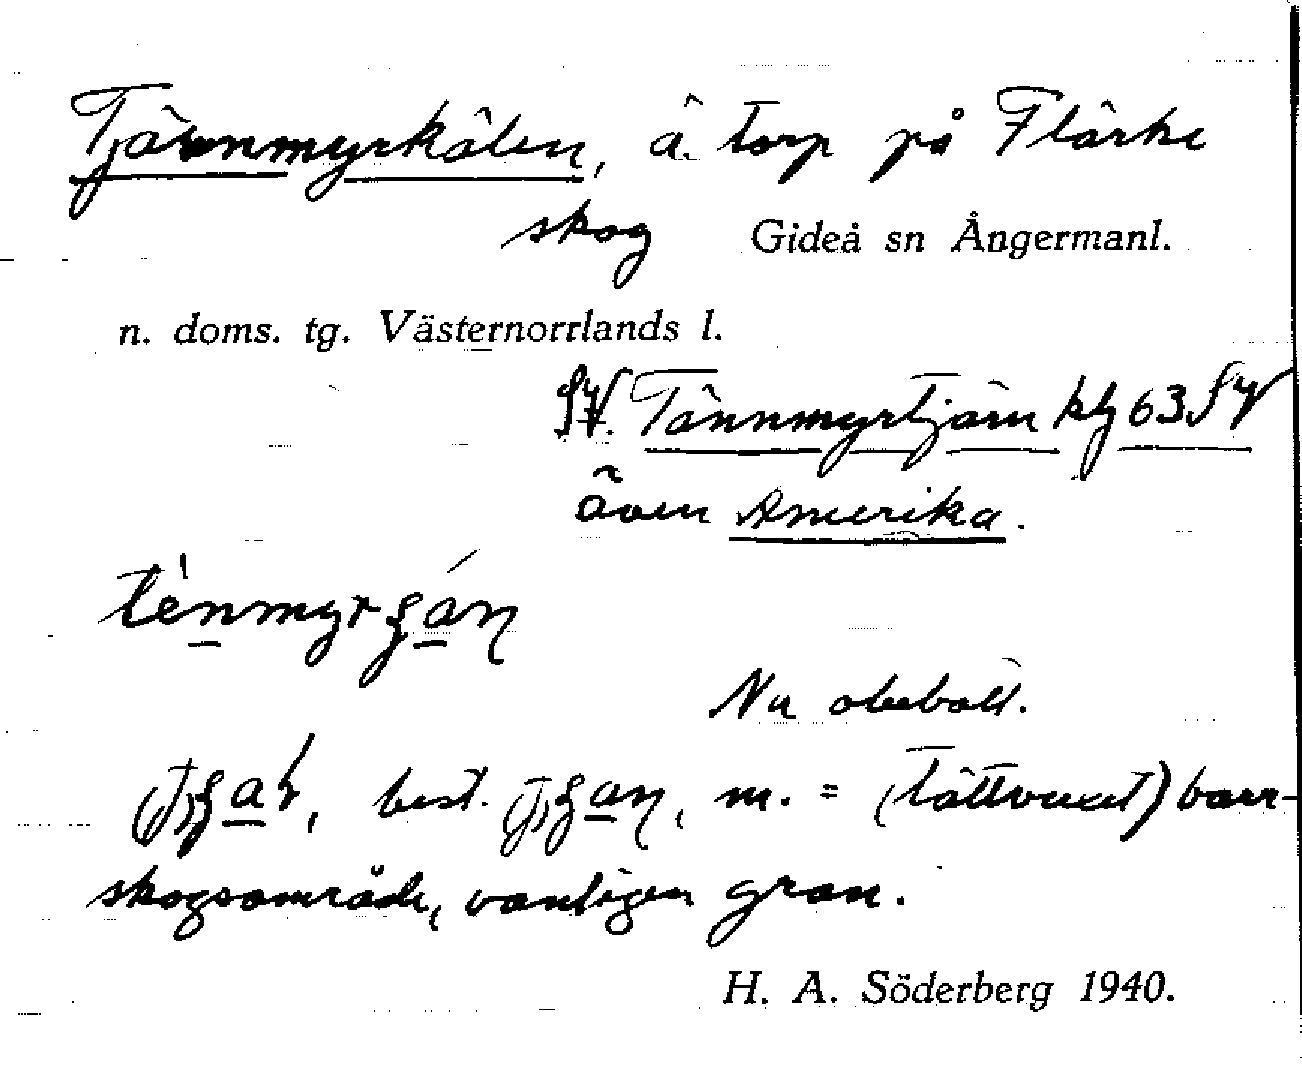 Tjärnmyrkälen, ä. torp på Flärke
skog Gideå sn Ångermanl.
n. doms. tg. Västernorrlands l.
Tännmyrtjärn kbl 63 SV
även Amerika.
Nu obebott.
best. m. = (tättvuxet) barr-
skogsområde, vanligen gran.
H. A. Söderberg 1940.